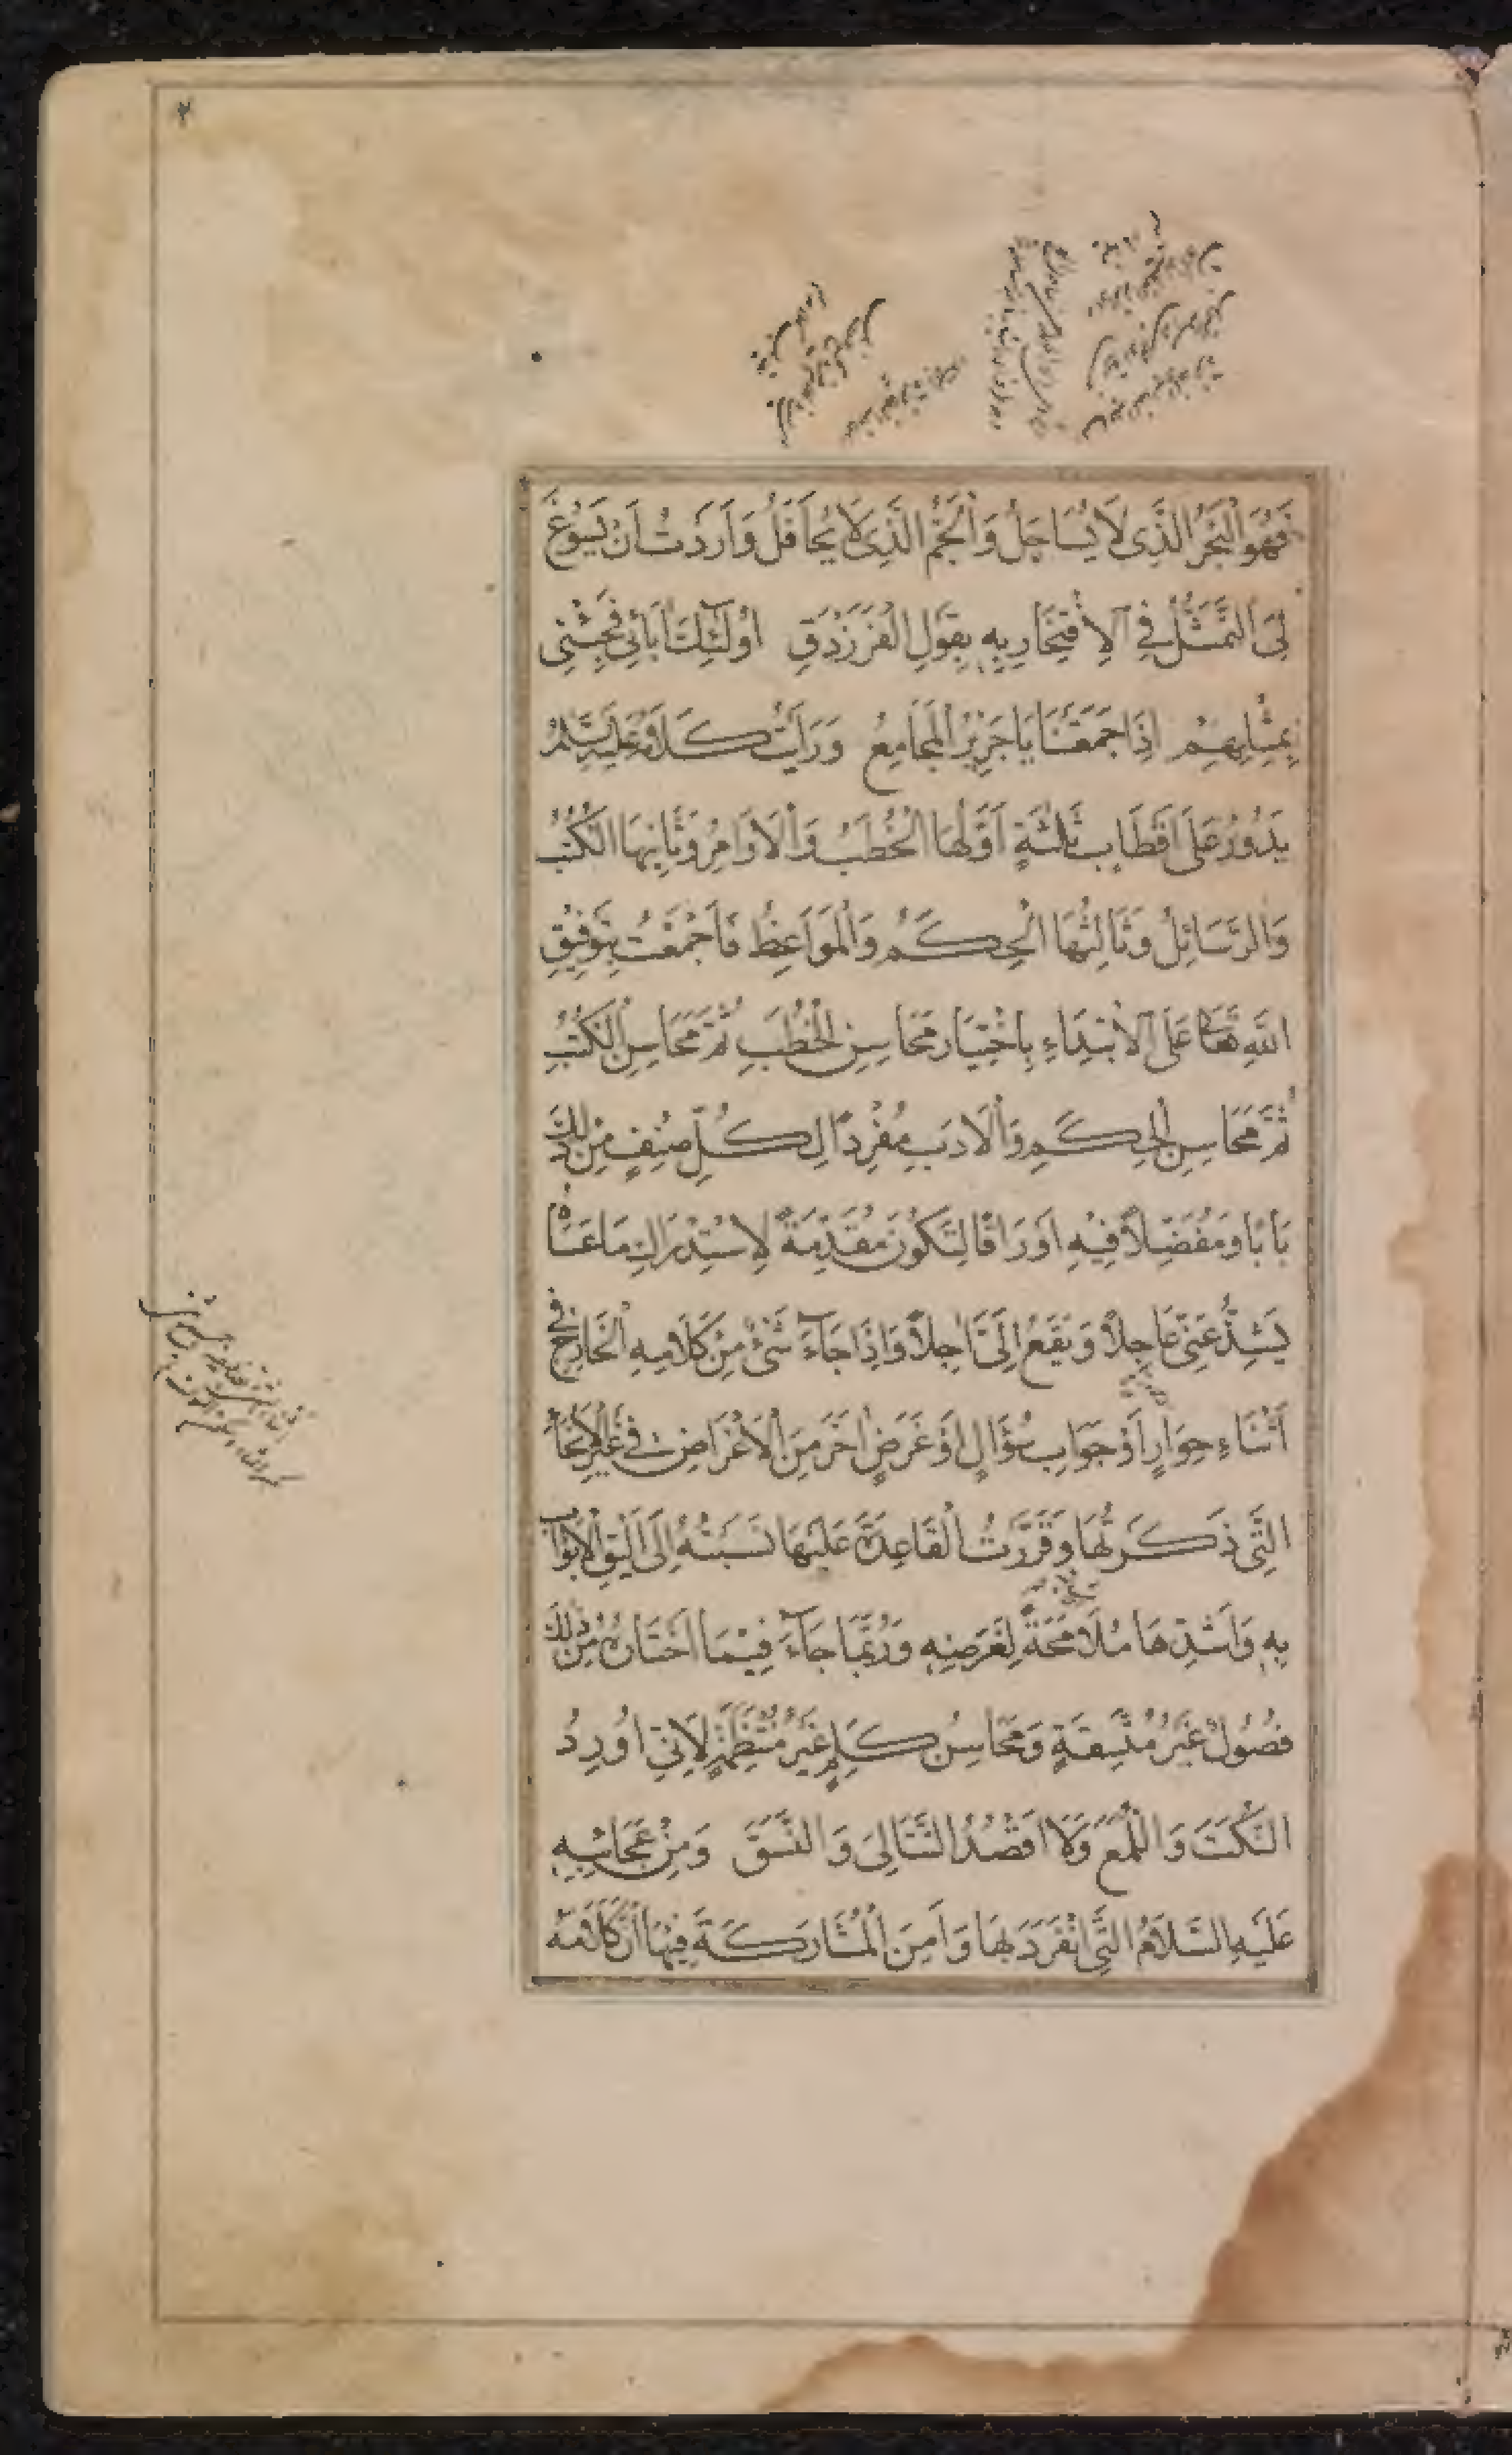 ٢
فَهُوَ الْبَحْرُ الَّذِى لَا يُسَاجَلُ وَالْجَمُّ الَّذِى لَا يُحَافَلُ وَاَرَدْتُ اَنْ يَسُوْغَ
لِىَ التَّمَثُّلُ فِى الْاِفْتِخَارِ بِهِ بِقَوْلِ الْفَرَزْدَقِ اُولٰئِكَ اٰبَائِى فَجِئْنِى
بِمِثْلِهِمْ اِذَا جَمَعَتْنَا يَا جَرِيْرُ الْمَجَامِعُ وَرَاَيْتُ كَلَامَهُ عَلَيْهِ السَّلَامُ
يَدُوْرُ عَلَى اَقْطَابٍ ثَلٰثَةٍ اَوَّلُهَا الْخُطَبُ وَالْاَوَامِرُ وَثَانِيهَا الْكُتُبُ
وَالرَّسَائِلُ وَثَالِثُهَا الْحِكَمُ وَالْمَوَاعِظُ فَاَجْمَعْتُ بِتَوْفِيْقِ
اللّٰهِ تَعَالٰى عَلَى الْاِبْتِدَاءِ بِاخْتِيَارِ مَحَاسِنِ الْخُطَبِ ثُمَّ مَحَاسِنِ الْكُتُبِ
ثُمَّ مَحَاسِنِ الْحِكَمِ وَالْاَدَبِ مُفْرِدًا لِكُلِّ صِنْفٍ مِنْ ذٰلِكَ
بَابًا وَمُفَضِّلًا فِيْهِ اَوْرَاقًا لِتَكُوْنَ مُقَدِّمَةً لِاسْتِدْرَاكِ مَا عَسَاهُ
يَشِذُّ عَنِّى عَاجِلًا وَيَقَعُ اِلَىَّ اٰجِلًا وَاِذَا جَاءَ شَىْءٌ مِنْ كَلَامِهِ الْخَارِجِ فِى
اَثْنَاءِ حِوَارٍ اَوْ جَوَابِ سُؤَالٍ اَوْ غَرَضٍ اٰخَرَ مِنَ الْاَغْرَاضِ فِى غَيْرِ الْاَنْحَاءِ
الَّتِى ذَكَرْتُهَا وَقَرَّرْتُ الْقَاعِدَةَ عَلَيْهَا نَسَبْتُهُ اِلَى اَلْيَقِ الْاَبْوَابِ
بِهِ وَاَشَدِّهَا مُلَامَحَةً لِغَرَضِهِ وَرُبَّمَا جَاءَ فِيْمَا اَخْتَارُهُ مِنْ ذٰلِكَ
فُصُوْلٌ غَيْرُ مُتَّسِقَةٍ وَمَحَاسِنُ كَلِمٍ غَيْرُ مُنْتَظِمَةٍ لِاَنِّى اُوْرِدُ
النُّكَتَ وَاللُّمَعَ وَلَا اَقْصُدُ التَّتَالِىَ وَالنَّسَقَ وَمِنْ عَجَائِبِهِ
عَلَيْهِ السَّلَامُ الَّتِى انْفَرَدَ بِهَا وَاَمِنَ الْمُشَارَكَةَ فِيْهَا اَنَّ كَلَامَهُ